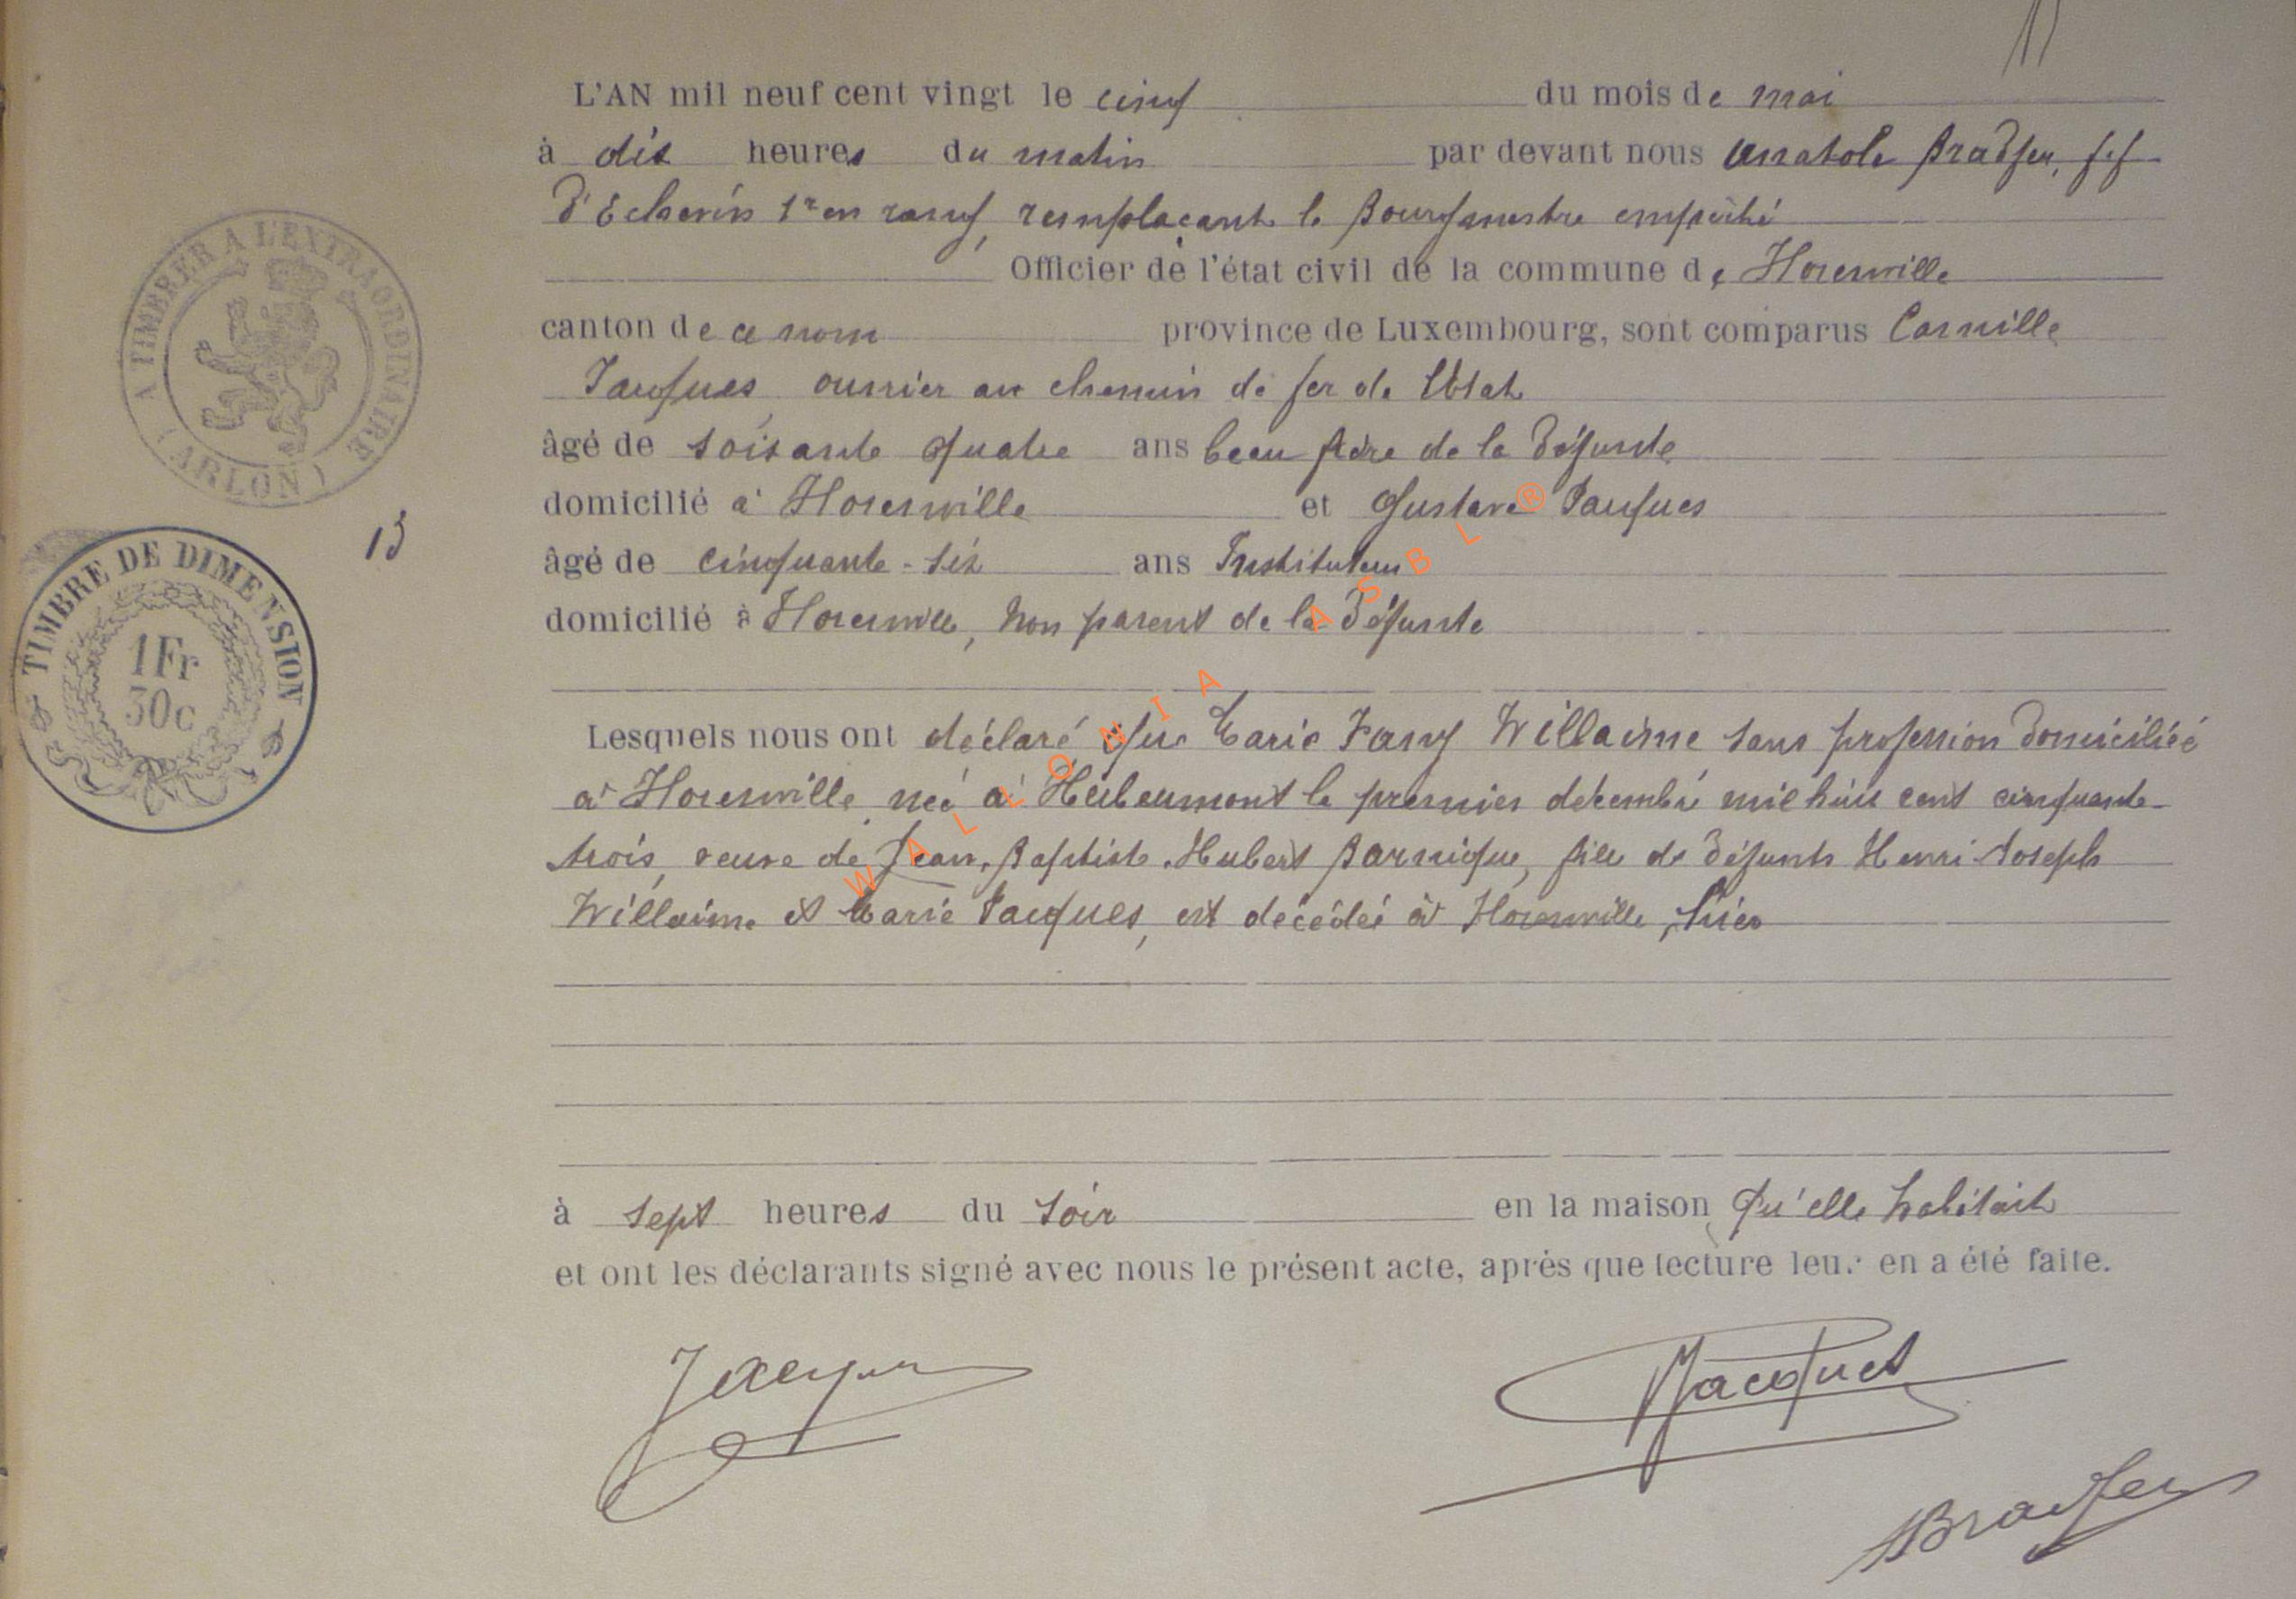 L'AN mil neuf cent vingt le cinq du mois de mai
à dix heures du matin par devant nous Anatole Bradfer, ff
d'Echevin 1er en rang, remplaçant le Bourgmestre empêché
Officier de l'état civil de la commune de Florenville
canton de ce nom province de Luxembourg, sont comparus Camille
Jacques, ouvrier au chemin de fer de l'Etat
âgé de soixante quatre ans beau frère de la défunte
domicilié à Florenville et Gustave Jacques
âgé de cinquante-six ans Instituteur
domicilié à Florenville, non parent de la défunte
Lesquels nous ont déclaré que Marie Fany Willaime sans profession domiciliée
à Florenville née à Herbeumont le premier décembre mil huit cent cinquante-
trois, veuve de Jean, Baptiste Hubert Barnique, fille de défunts Henri Joseph
Willaime et Marie Jacques, est décédée à Florenville, hier
à sept heures du soir en la maison qu'elle habitait
et ont les déclarants signé avec nous le présent acte, après que lecture leur en a été faite.
Jacques
Jacques
ABradfer
A TIMBRER A L'EXTRAORDINAIRE
(ARLON)
13
TIMBRE DE DIMENSION
1Fr
30c
WALLONIA ASBL ®